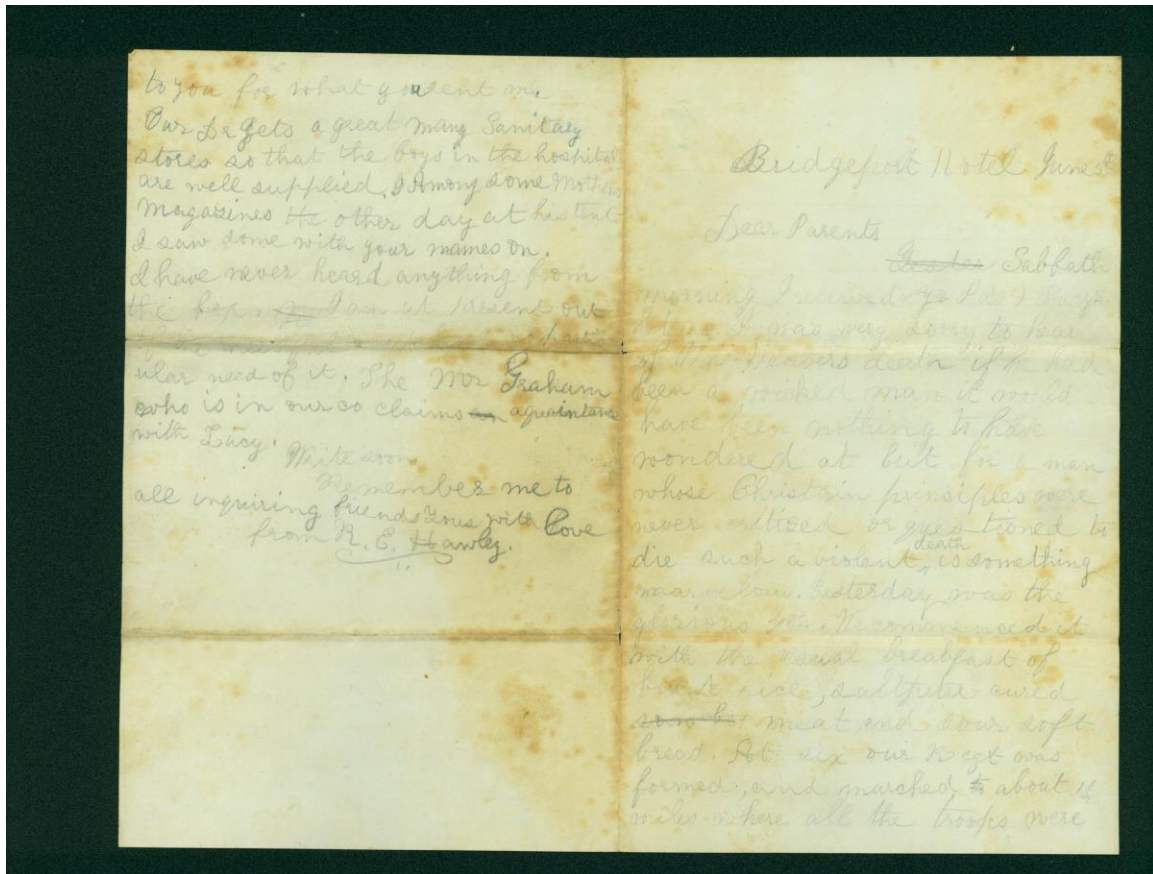 to you for what you sent me
Our Dr gets a great many Sanitary
stores so that the boys in the hospital
are well supplied. I Among some Mothers
Magazines the other day at his tent
I saw some with your names on.
I have never heard anything from
the box I am at present out
of the
ular need of it. The Mr Graham
who is in our co claims an aquaintance
with Lucy.
Write soon
Remember me to
all inquiring friends Yours with Love
from R. E. Hawley.
Bridgeport Hotel June 5th
Dear Parents
Sabbath
morning I received
I was very sorry to hear
of death if he had
been a wicked man it would
have been nothing to have
wondered at but for a man
whose Christain principles were
never or questioned to
die such a violent death is something
marvelous. Yesterday was the
glorious 4th. We commenced it
with the usual breakfast of
rice, saltpeter cured
meat, and sour soft
bread. At six our Regt was
formed, and marched to about 1½
miles where all the troops were